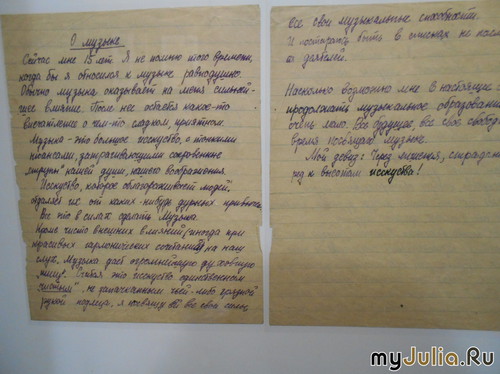 О музыке
Сейчас мне 15 лет. Я не помню того времени,
когда бы я относился к музыке равнодушно.
Обычно музыка оказывает на меня сильней-
шее влияние. После нее остается какое-то
впечатление о чем-то сладком, приятном.
Музыка - это большое искусство, с тонкими
нюансами, затрагивающими сокровенные
струны нашей души, нашего воображения.
Искусство, которое облагораживает людей,
отдаляет их от каких-нибудь дурных привычек.
Все это в силах сделать музыка.
Кроме чисто внешних влияний, иногда при
красивых гармонических сочетаний на наш
слух, музыка дает духовную
пищу. это искусство единственном
чистым, не запачканным чьей-либо грязной
рукой подлеца, я посвящу ей все свои силы,
все свои музыкальные способности,
И постараюсь быть в
Насколько возможно мне в настоящее
продолжать музыкальное образование
очень мало. Все будущее, все свое свобод
время посвящу музыке.
Мой девиз: Через лишения, страдания
к высотам искусства!
myJulia.Ru